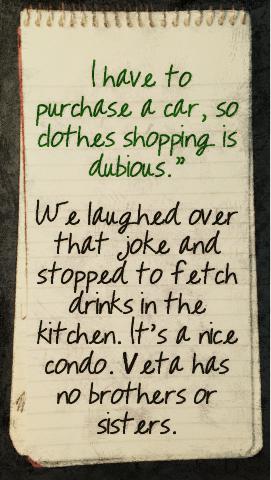 I have to
purchase a car, so
clothes shopping is
dubious."
We laughed over
that joke and
stopped to fetch
drinks in the
kitchen. It's a nice
condo. Veta has
no brothers or
sisters.